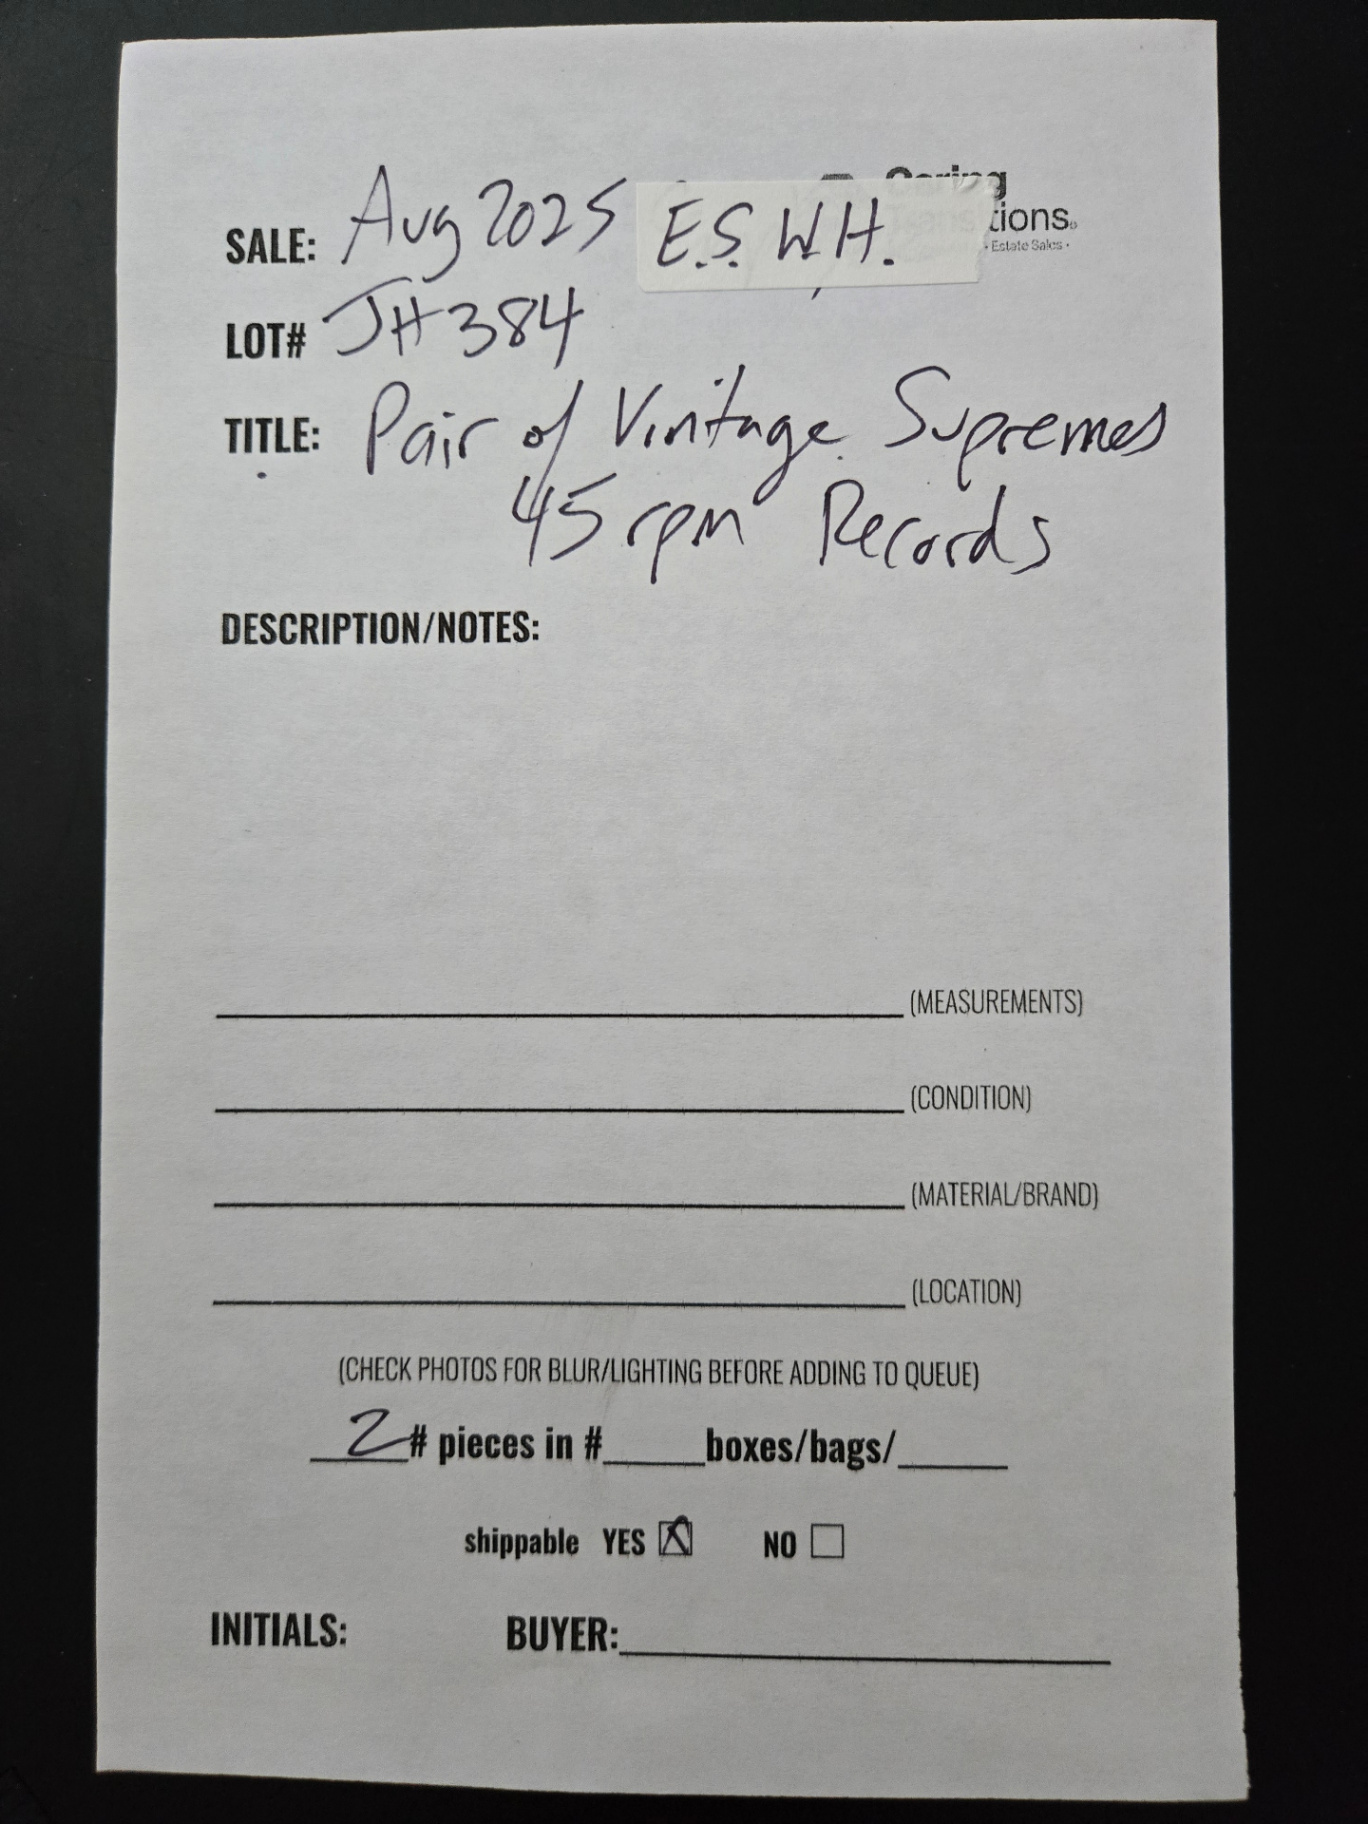 Caring
Transitions
· Estate Sales ·
SALE: Aug 2025 E.S. W.H.
LOT# JH384
TITLE: Pair of Vintage Supremes
45 rpm Records
DESCRIPTION/NOTES:
(MEASUREMENTS)
(CONDITION)
(MATERIAL/BRAND)
(LOCATION)
(CHECK PHOTOS FOR BLUR/LIGHTING BEFORE ADDING TO QUEUE)
2 # pieces in #_____boxes/bags/_____
shippable YES ☒ NO ☐
INITIALS: BUYER: